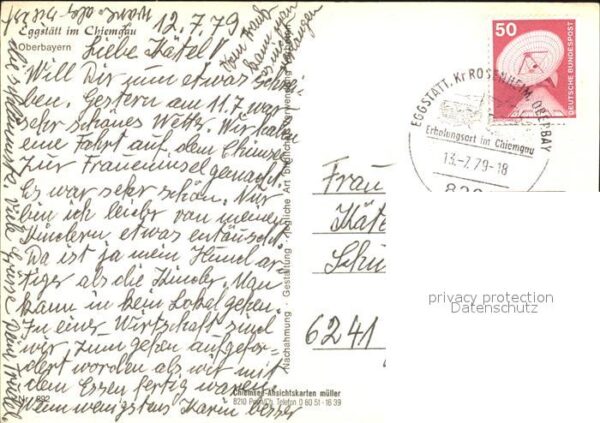 Eggstätt im Chiemgau
Oberbayern
12.7.79
Liebe Kätel!
Will Dir nun etwas schrei
ben. Gestern am 11.7 war
sehr schönes Wetter. Wir haben
eine Fahrt auf dem Chimsee
zur Fraueninsel gemacht.
Es war sehr schön. Nur
bin ich leider von meinen
Kindern etwas entäuscht.
Da ist ja mein Hund ar-
tiger als die Kinder. Man
kann in kein Lokal gehen.
In einer Wirtschaft sind
wir zum gehen aufgefor-
dert worden als wir mit
dem Essen fertig waren.
Wenn wenigstens Karin besser
wäre aber die ist
Viele Grüsse
Vom Frank
kann man
verlangen
Nachahmung · Gestaltung · jegliche Art
Nr. 892
Chiemsee-Ansichtskarten müller
8210 Prien/Ch. Telefon 0 80 51 - 16 39
50
DEUTSCHE BUNDESPOST
EGGSTÄTT, Kr ROSENHEIM, OBERBAY
Erholungsort im Chiemgau
13.-7.79-18
820
Frau
Käte
Schü
6241
privacy protection
Datenschutz